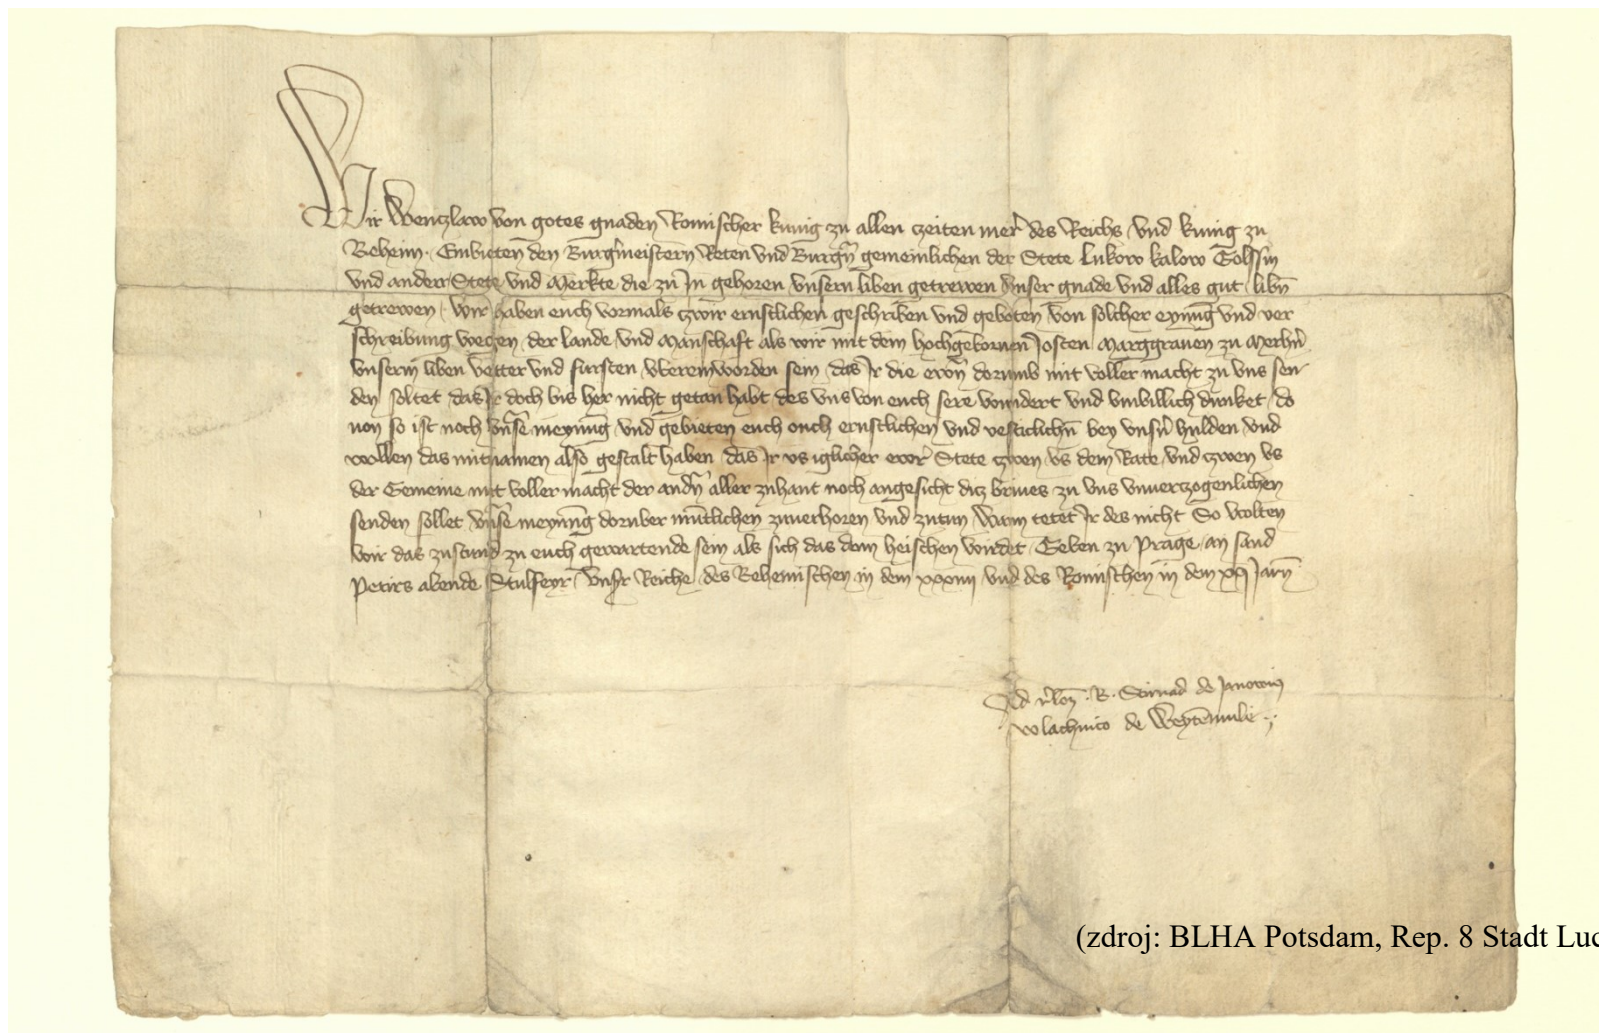 Wir Wenczlaw von gotes gnaden Romischer kunig zu allen czeiten merer des Reichs vnd kunig zu
Beheim. Embieten den Burgermeistern Reten vnd Burgern gemeinlichen der Stete Lukow kalow Golssin
vnd anderr Stete vnd Merkte die zu In gehoren vnsern liben getrewen vnser gnade vnd alles gut liben
getrewen. Wir haben euch vormals czwir ernstlichen geschriben vnd geboten von solcher eynung vnd ver
schreibung wegen der lande vnd Manschaft als wir mit dem hochgebornen Josten Marggrauen zu Merhern
vnserm liben vetter vnd fursten vberein worden sein das Ir die ewern dorumb mit voller macht zu vns sen
den soltet das Ir doch bis her nicht getan habt des vns von euch sere wundert vnd vnbillich dunket do
von so ist noch vnser meynung vnd gebieten euch ouch ernstlichen vnd vesticlichen bey vnsern hulden vnd
wollen das mitnamen also gestalt haben das Ir vs iglicher ewer Stete czwen vs dem Rate vnd czwen vs
der Gemeine mit voller macht der andern aller zuhant noch angesicht dicz briues zu vns vnuerczogenlichen
senden sollet vnser meynung doruber muntlichen zuuerhoren vnd zutun Wann tetet Ir des nicht So wolten
wir das zustund zu euch gewartende sein als sich das denn heischen wirdet Geben zu Prage an sand
Peters abende Stulfeyer vnser Reiche des Behemischen in dem xxxiiii vnd des Romischen in dem xxi Jaren
Ad relacionem .R. de Janowicz
Wlachnico de Weytenmule
(zdroj: BLHA Potsdam, Rep. 8 Stadt Luc